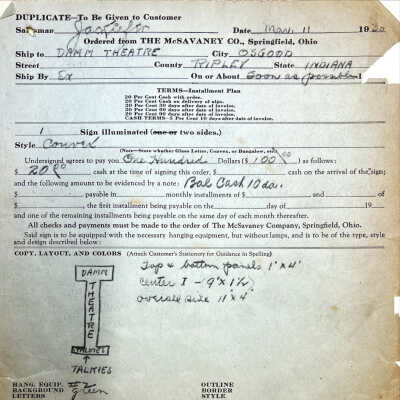 DUPLICATE—To Be Given to Customer
Salesman Date Mar. 11 1930
Ordered from THE McSAVANEY CO., Springfield, Ohio
Ship to DAMM THEATRE City OSGOOD
Street County RIPLEY State INDIANA
Ship By Ex On or About Soon as possible 1
TERMS—Installment Plan
20 Per Cent Cash with order.
20 Per Cent Cash on delivery of sign.
20 Per Cent 30 days after date of invoice.
20 Per Cent 60 days after date of invoice.
20 Per Cent 90 days after date of invoice.
CASH TERMS—5 Per Cent 10 days after date of invoice.
1 Sign illuminated (one or two sides.)
Style Convex
(Note—State whether Glass Letter, Convex, or Bungalow, etc.)
Undersigned agrees to pay you One Hundred Dollars ($ 100.00) as follows:
$ 20.00 cash at the time of signing this order, $ cash on the arrival of the sign;
and the following amount to be evidenced by a note: Bal Cash 10 da.
$ payable in monthly installments of $ and of
$, the first installment being payable on the day of 19
and one of the remaining installments being payable on the same day of each month thereafter.
All checks and payments must be made to the order of The McSavaney Company, Springfield, Ohio.
Said sign is to be equipped with the necessary hanging equipment, but without lamps, and is to be of the type, style
and design described below:
COPY, LAYOUT, AND COLORS (Attach Customer's Stationery for Guidance in Spelling)
DAMM
THEATRE
TALKIES
Top & bottom panels 1' x 4'
center I - 9' x 1½'
overall size 11' x 4'
HANG. EQUIP. #2
BACKGROUND green
LETTERS
OUTLINE
BORDER
STYLE